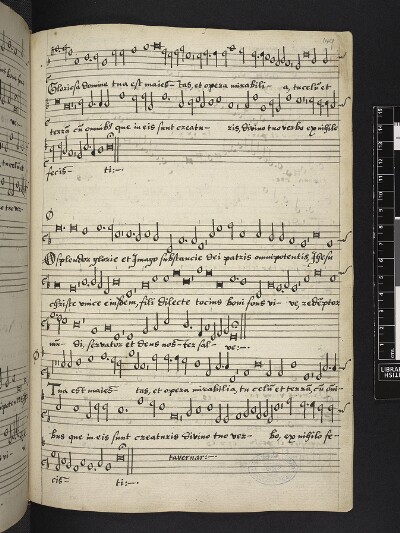 Gloriosa domine tua est maies- tas, et opera mirabili- a, tu celū et
terrā cū omnibꝫ que in eis sunt creatu- ris, divino tuo verbo ex nihilo
fecis- ti:—
O splendor glorie et Imago substancie dei patris omnipotentis, Jhesu
christe unice eiusdem, fili dilecte tocius boni fons vi- ve, redēptor
mū- di, servator et deus nos- ter sal- ve:—
Tua est maies- tas, et opera mirabilia, tu celū et terrā, cū ōni-
bus que in eis sunt creaturis divino tuo ver- bo, ex nihilo fe-
cis- ti:—
tavernar:—